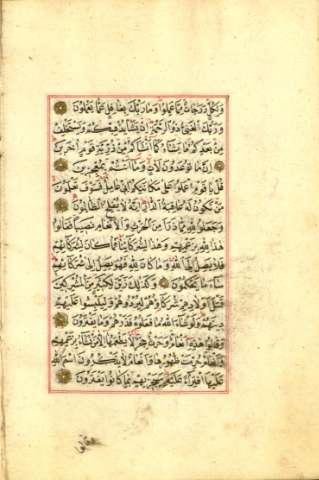 وَلِكُلٍّ دَرَجَاتٌ مِمَّا عَمِلُوا وَمَا رَبُّكَ بِغَافِلٍ عَمَّا يَعْمَلُونَ
وَرَبُّكَ الْغَنِيُّ ذُو الرَّحْمَةِ إِنْ يَشَأْ يُذْهِبْكُمْ وَيَسْتَخْلِفْ
مِنْ بَعْدِكُمْ مَا يَشَاءُ كَمَا أَنْشَأَكُمْ مِنْ ذُرِّيَّةِ قَوْمٍ آخَرِينَ
إِنَّ مَا تُوعَدُونَ لَآتٍ وَمَا أَنْتُمْ بِمُعْجِزِينَ
قُلْ يَا قَوْمِ اعْمَلُوا عَلَى مَكَانَتِكُمْ إِنِّي عَامِلٌ فَسَوْفَ تَعْلَمُونَ
مَنْ تَكُونُ لَهُ عَاقِبَةُ الدَّارِ إِنَّهُ لَا يُفْلِحُ الظَّالِمُونَ
وَجَعَلُوا لِلَّهِ مِمَّا ذَرَأَ مِنَ الْحَرْثِ وَالْأَنْعَامِ نَصِيبًا فَقَالُوا
هَذَا لِلَّهِ بِزَعْمِهِمْ وَهَذَا لِشُرَكَائِنَا فَمَا كَانَ لِشُرَكَائِهِمْ
فَلَا يَصِلُ إِلَى اللَّهِ وَمَا كَانَ لِلَّهِ فَهُوَ يَصِلُ إِلَى شُرَكَائِهِمْ
سَاءَ مَا يَحْكُمُونَ وَكَذَلِكَ زَيَّنَ لِكَثِيرٍ مِنَ الْمُشْرِكِينَ
قَتْلَ أَوْلَادِهِمْ شُرَكَاؤُهُمْ لِيُرْدُوهُمْ وَلِيَلْبِسُوا عَلَيْهِمْ
دِينَهُمْ وَلَوْ شَاءَ اللَّهُ مَا فَعَلُوهُ فَذَرْهُمْ وَمَا يَفْتَرُونَ
وَقَالُوا هَذِهِ أَنْعَامٌ وَحَرْثٌ حِجْرٌ لَا يَطْعَمُهَا إِلَّا مَنْ نَشَاءُ بِزَعْمِهِمْ
وَأَنْعَامٌ حُرِّمَتْ ظُهُورُهَا وَأَنْعَامٌ لَا يَذْكُرُونَ اسْمَ اللَّهِ
عَلَيْهَا افْتِرَاءً عَلَيْهِ سَيَجْزِيهِمْ بِمَا كَانُوا يَفْتَرُونَ
وقالوا